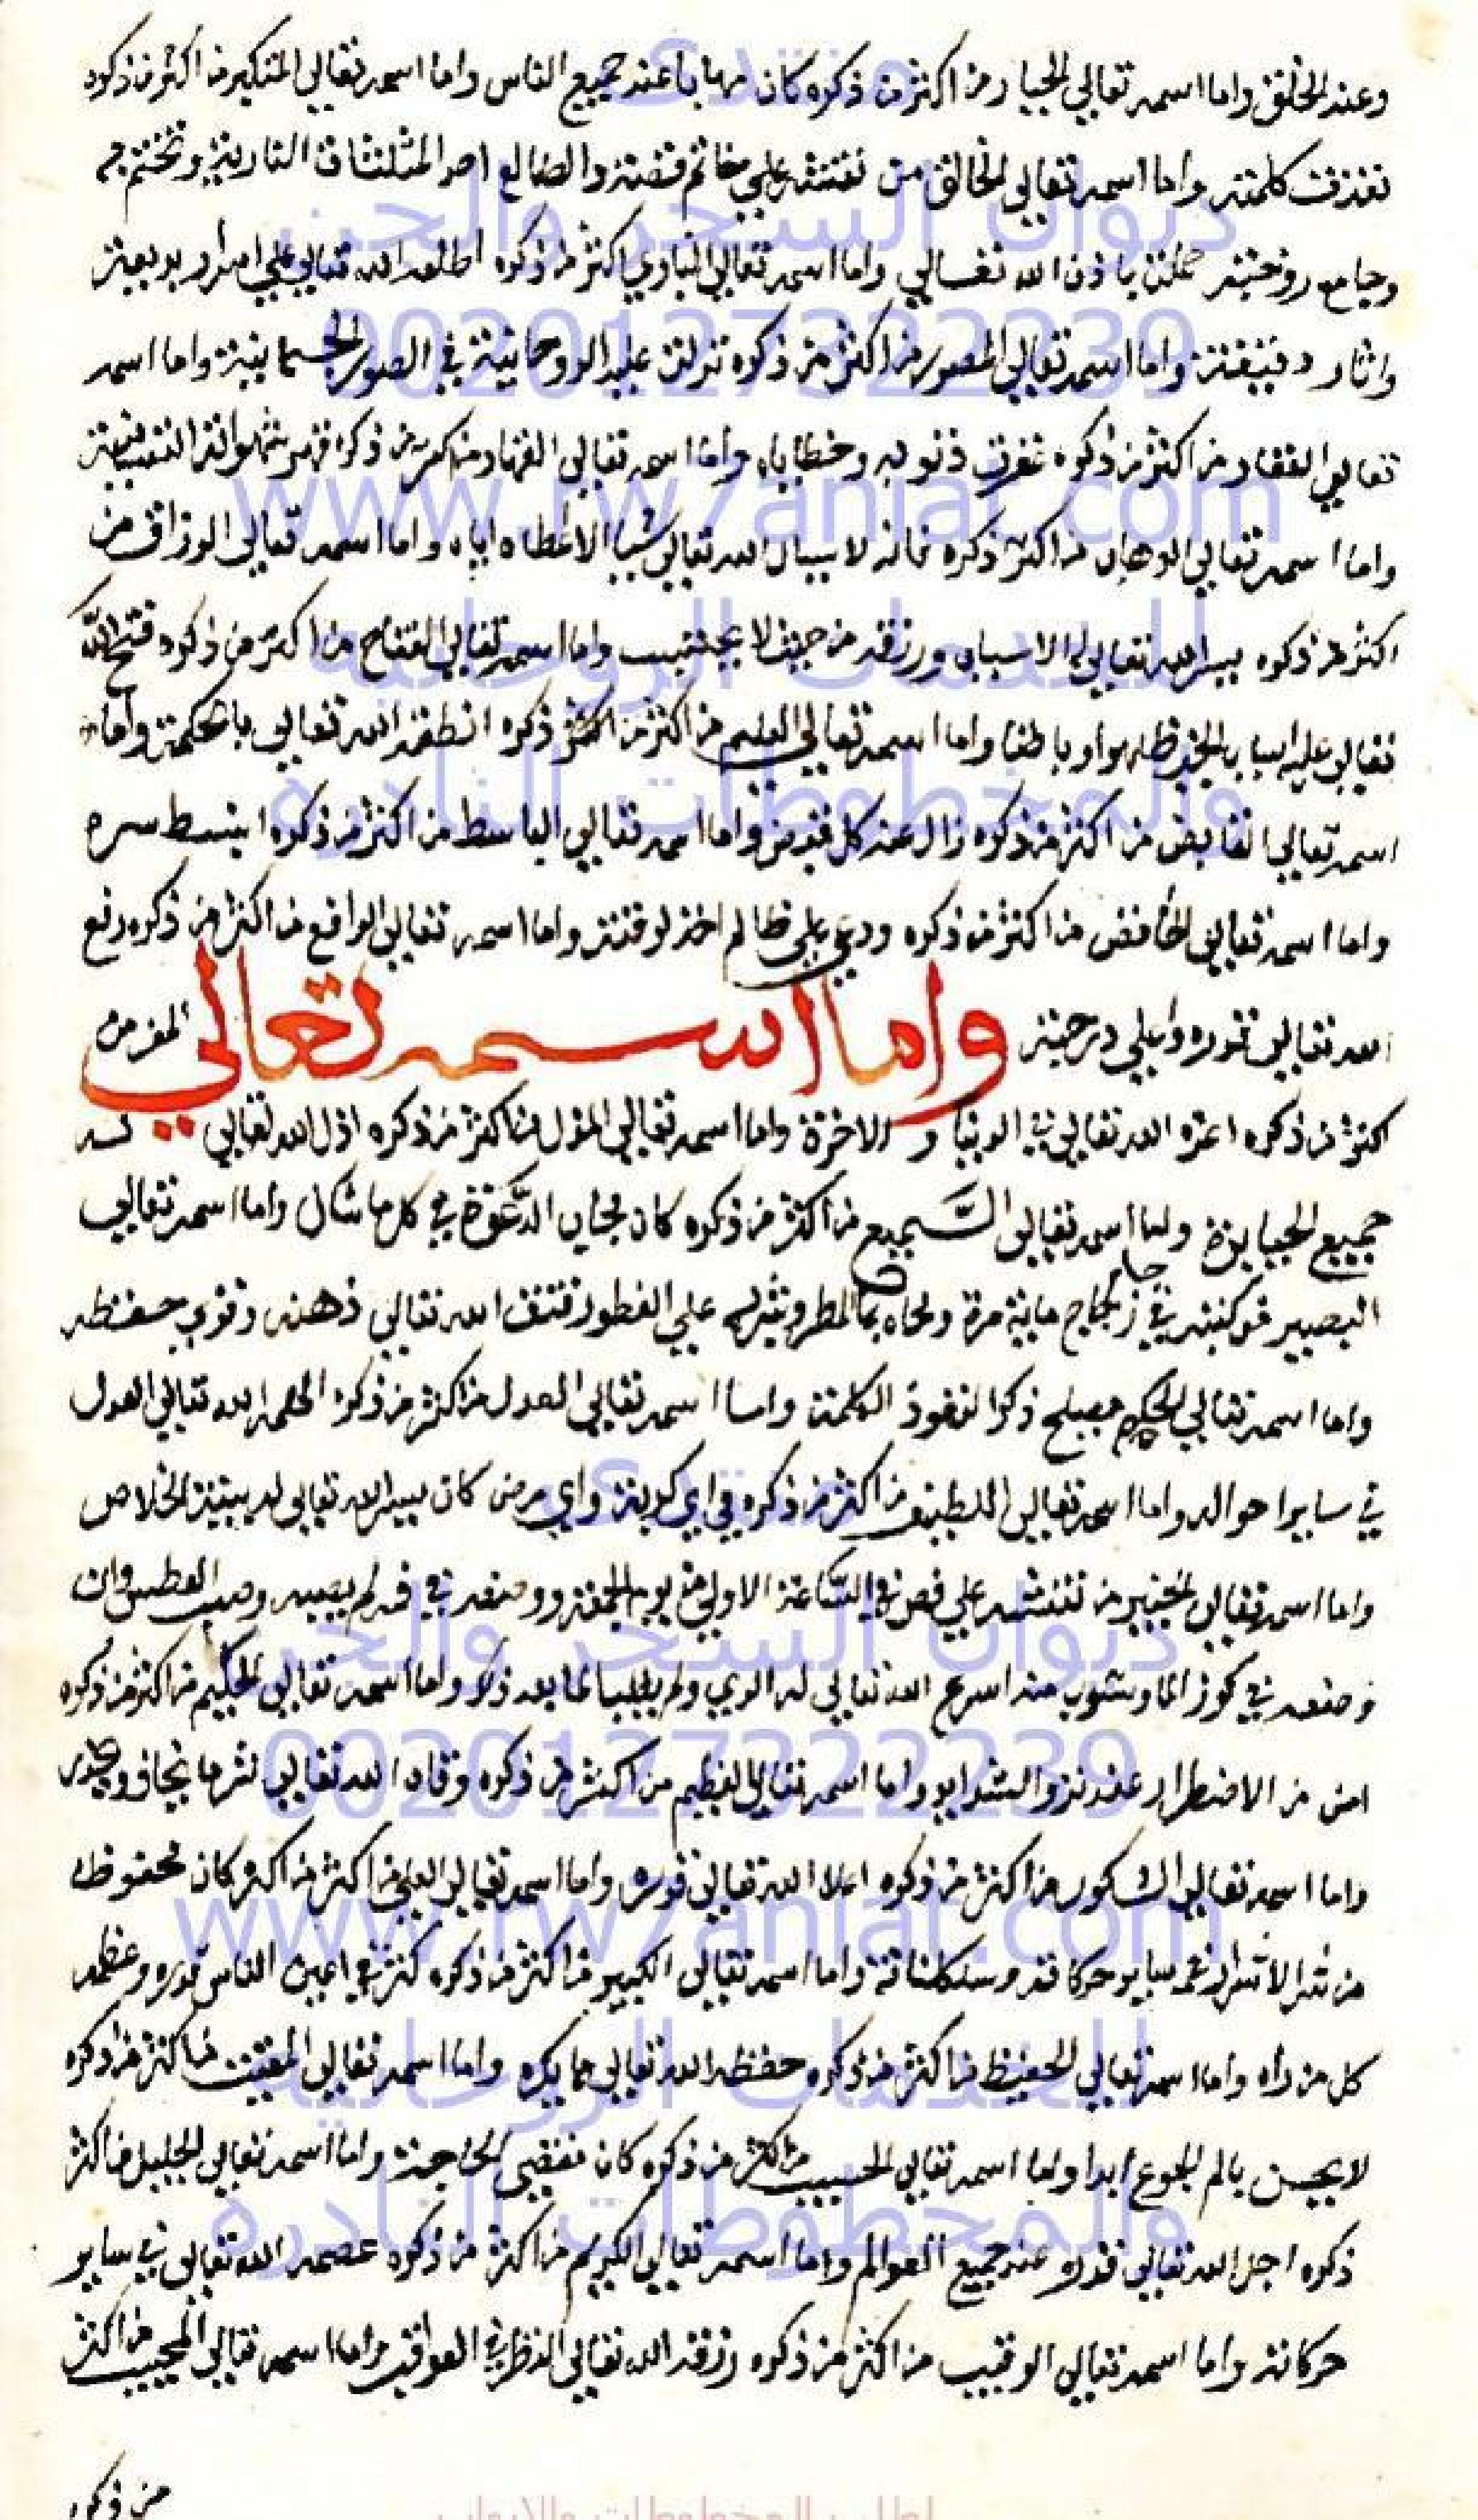 وعند الخلق واما اسمه تعالي الجبار من اكثر من ذكره كان مهابا عند جميع الناس واما اسمه تعالي المتكبر من اكثر من ذكره
نفذت كلمته واما اسمه تعالي الخالق من نقشه علي خاتم فضة والطالع احد المثلثات النارية وتختم به
وجامع زوجته حملت باذن الله تعالي واما اسمه تعالي الباري اكثر من ذكره اطلعه الله تعالي علي اسرار بديعة
واثار دقيقة واما اسمه تعالي المصور من اكثر من ذكره نزلت عليه الروحانية في الصور الجسمانية واما اسمه
تعالي الغفار من اكثر من ذكره غفرت ذنوبه وخطاياه واما اسمه تعالي القهار من اكثر من ذكره قهر شهواته النفسانية
واما اسمه تعالي الوهاب من اكثر ذكره فانه لا يسال الله تعالي شيا الا اعطاه اياه واما اسمه تعالي الرزاق من
اكثر من ذكره يسر الله تعالي له الاسباب ورزقه من حيث لا يحتسب واما اسمه تعالي الفتاح من اكثر من ذكره فتح الله
تعالي عليه اسباب الخير ظاهرا وباطنا واما اسمه تعالي العليم من اكثر من اكثر ذكره انطقه الله تعالي بالحكمة واما
اسمه تعالي القابض من اكثر من ذكره زال عنه كل قبض واما اسمه تعالي الباسط من اكثر من ذكره انبسط سره
واما اسمه تعالي الخافض من اكثر من ذكره ودعي علي ظالم اخذ لوقته واما اسمه تعالي الرافع من اكثر من ذكره رفع
الله تعالي قدره واعلي درجته واما اسمه تعالي المعز من
اكثر من ذكره اعزه الله تعالي في الدنيا والاخرة واما اسمه تعالي المذل من اكثر من ذكره اذل الله تعالي له
جميع الجبابرة واما اسمه تعالي السَّميع من اكثر من ذكره كان مجاب الدَّعوة في كل ما سال واما اسمه تعالي
البصير من كتبه في جام زجاج ماية مرة ومحاه بماء المطر وشربه علي الفطور فتق الله تعالي ذهنه وقوي حفظه
واما اسمه تعالي الحكم يصلح ذكرا لنفوذ الكلمة واما اسمه تعالي العدل من اكثر من ذكره الهمه الله تعالي العدل
في ساير احواله واما اسمه تعالي اللطيف من اكثر من ذكره في اي كربة واي مرض كان يسر الله تعالي له الخلاص
واما اسمه تعالي الخبير من نقشه علي فص في السَّاعة الاولي من يوم الجمعة ووضعه في فيه لم يصيبه العطش وان
وضعه في كوز الماء وشرب منه اسرع الله تعالي له الري ولم يطلب الما بعد ذلك واما اسمه تعالي الحليم من اكثر من ذكره
امن من الاضطرار عند نزول الشدايد واما اسمه تعالي العظيم من اكثر من ذكره وقاه الله تعالي شر ما يخاف ويحذر
واما اسمه تعالي الشكور من اكثر من ذكره اعلا الله تعالي قدره واما اسمه تعالي العلي من اكثر من اكثر كان محفوظا
من شر الاشرار في ساير حركاته وسكناته واما اسمه تعالي الكبير من اكثر من ذكره كبر في اعين الناس قدره وعظمه
كل من راه واما اسمه تعالي الحفيظ من اكثر من ذكره حفظه الله تعالي مما يكره واما اسمه تعالي المقيت من اكثر من ذكره
لا يحس بالم الجوع ابدا واما اسمه تعالي الحسيب من اكثر من ذكره كان مقضي الحاجة واما اسمه تعالي الجليل من اكثر
ذكره اجل الله تعالي قدره عند جميع العوالم واما اسمه تعالي الكريم من اكثر من ذكره عصمه الله تعالي في ساير
حركاته واما اسمه تعالي الرقيب من اكثر من ذكره رزقه الله تعالي النظر في العواقب واما اسمه تعالي المجيب من اكثر
من ذكره
منتدى
ديوان السحر والجن
0020127322239
www.rw7aniat.com
للخدمات الروحانية
والمخطوطات النادرة
منتدى
ديوان السحر والجن
0020127322239
www.rw7aniat.com
للخدمات الروحانية
والمخطوطات النادرة